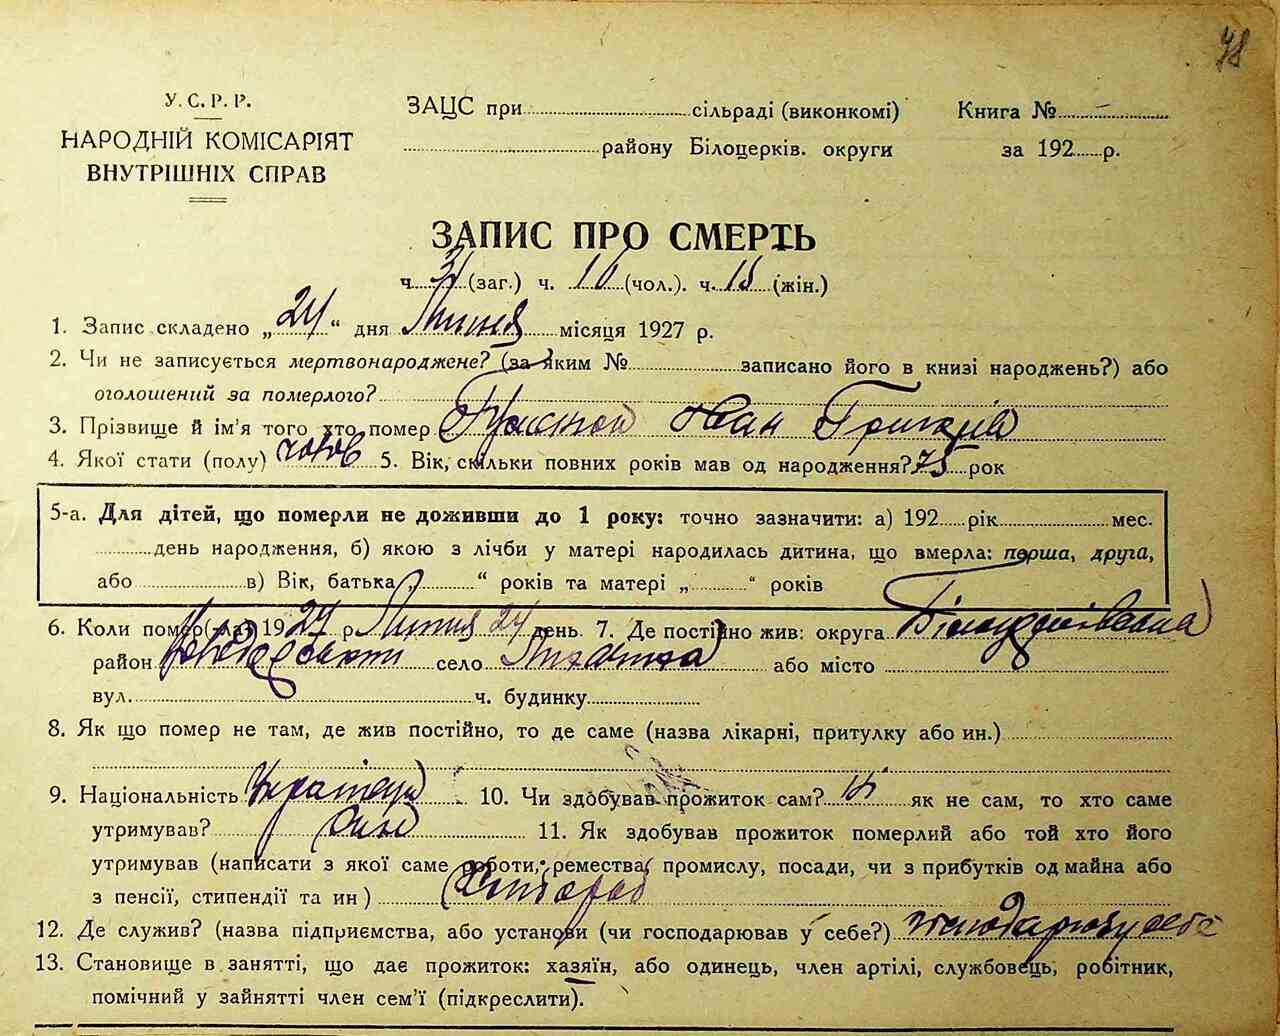 78
У. С. Р. Р.
НАРОДНІЙ КОМІСАРІЯТ
ВНУТРІШНІХ СПРАВ
ЗАЦС при сільраді (виконкомі)
району Білоцерків. округи
Книга №
за 192 р.
ЗАПИС ПРО СМЕРТЬ
ч. 31 (заг.) ч. 16 (чол.). ч. 15 (жін.)
1. Запис складено „24“ дня Липня місяця 1927 р.
2. Чи не записується мертвонароджене? (за яким № записано його в книзі народжень?) або
оголошений за померлого?
3. Прізвище й ім'я того хто помер Іван Григорів
4. Якої стати (полу) чолов 5. Вік, скільки повних років мав од народження? 75 рок
5-а. Для дітей, що померли не доживши до 1 року: точно зазначити: а) 192 рік мес.
день народження, б) якою з лічби у матері народилась дитина, що вмерла: перша, друга,
або в) Вік, батька „ “ років та матері „ “ років
6. Коли помер(-ла) 1927 р Липня 24 день. 7. Де постійно жив: округа Білоцерківська
район село або місто
вул. ч. будинку
8. Як що помер не там, де жив постійно, то де саме (назва лікарні, притулку або ин.)
9. Національність Українец 10. Чи здобував прожиток сам? як не сам, то хто саме
утримував? син 11. Як здобував прожиток померлий або той хто його
утримував (написати з якої саме роботи, ремества, промислу, посади, чи з прибутків од майна або
з пенсії, стипендії та ин) Хлібороб
12. Де служив? (назва підприємства, або установи (чи господарював у себе?)
13. Становище в занятті, що дає прожиток: хазяїн, або одинець, член артілі, службовець, робітник,
помічний у зайнятті член сем'ї (підкреслити).